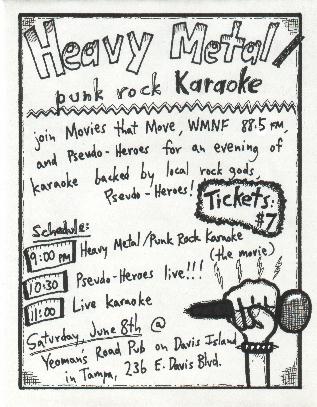 Heavy Metal/
punk rock Karaoke
join Movies that Move, WMNF 88.5 FM,
and Pseudo-Heroes for an evening of
karaoke backed by local rock gods,
Pseudo-Heroes!
Tickets:
$7
Schedule:
9:00 PM Heavy Metal/Punk Rock Karaoke
(the movie)
10:30 Pseudo-Heroes live!!!
11:00 Live karaoke
Saturday June 8th @
Yeoman's Road Pub on Davis Island
in Tampa, 236 E. Davis Blvd.